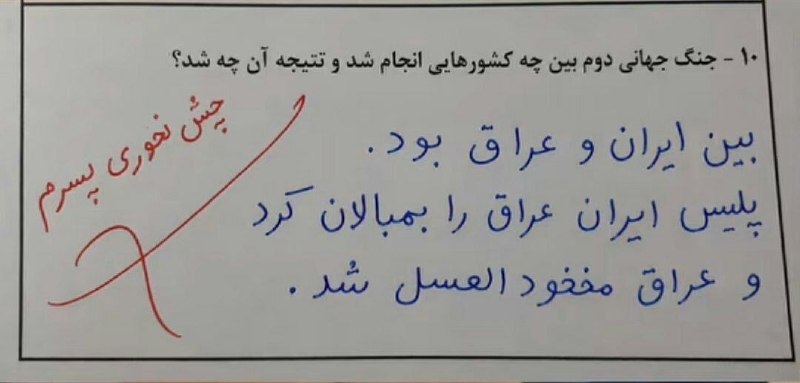 ۱۰ - جنگ جهانی دوم بین چه کشورهایی انجام شد و تتیجه آن چه شد؟
بین ایران و عراق بود.
پلیس ایران عراق را بمبالان کرد
و عراق مخخود العسل شد.
چش نخوری پسرم